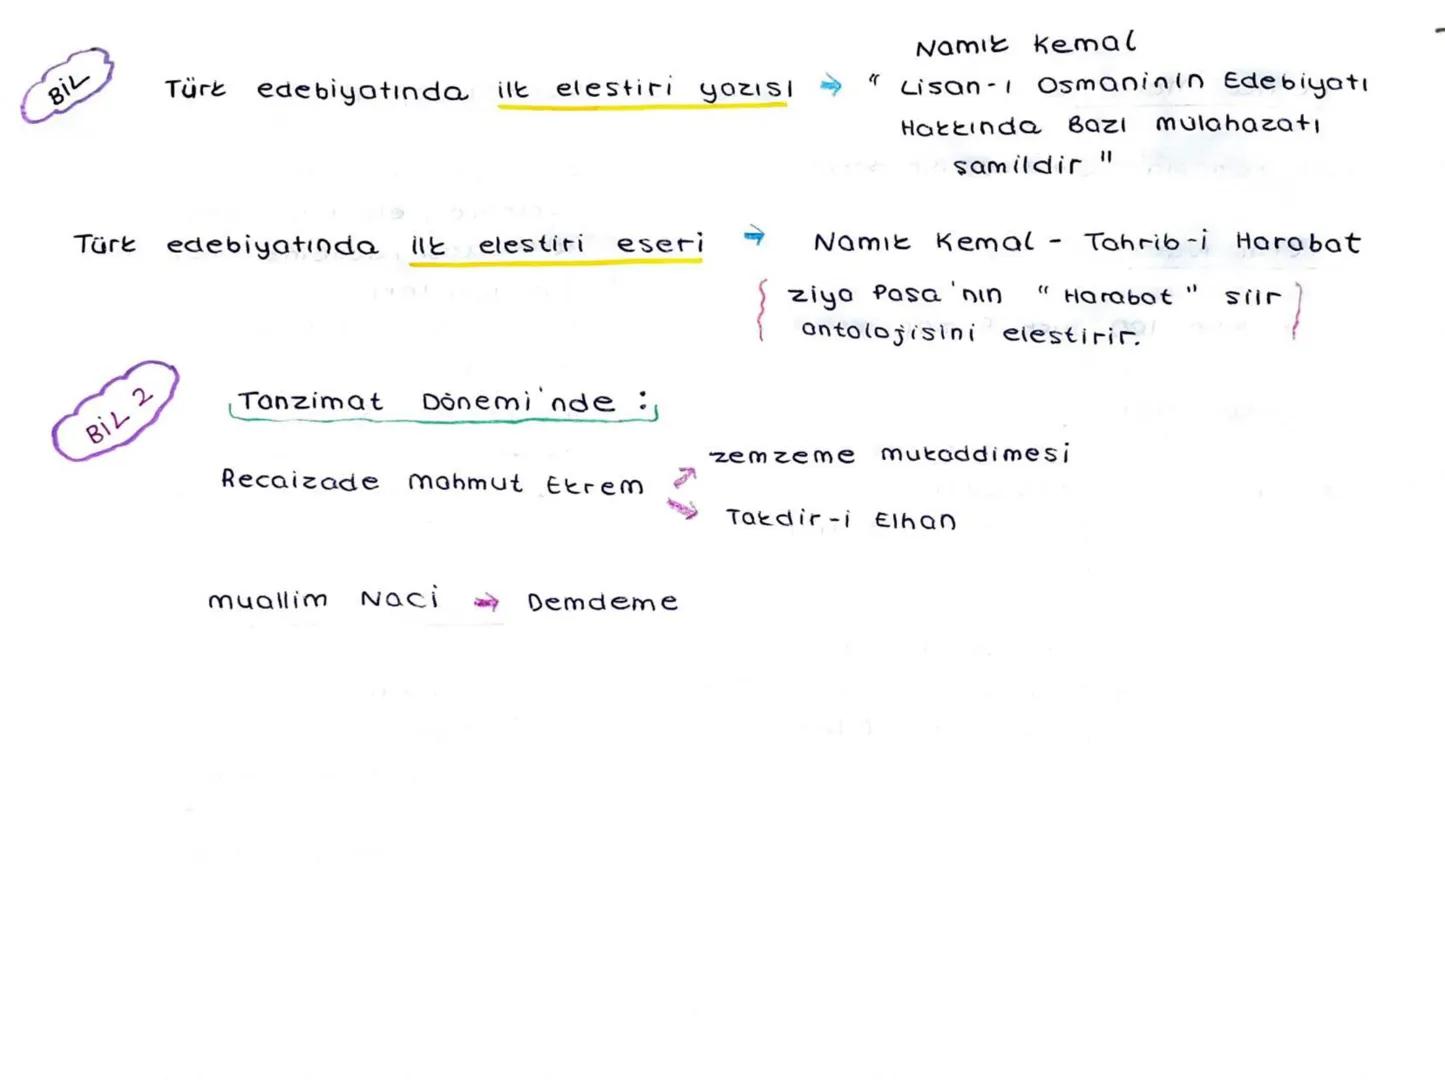 BİL
Türk edebiyatında ilk elestiri yazısı → Namık Kemal
" Lisan-ı Osmaninin Edebiyatı
Hakkında Bazı mülahazatı
şamildir "
Türk edebiyatında ilk elestiri eseri → Namık Kemal - Tahrib-i Harabat
{ ziya Pasa'nın " Harabat " siir }
antolojisini elestirir.
BİL 2
Tanzimat Dönemi'nde :
zemzeme mukaddimesi
Recaizade mahmut Ekrem
Takdir-i Elhan
muallim Naci → Demdeme